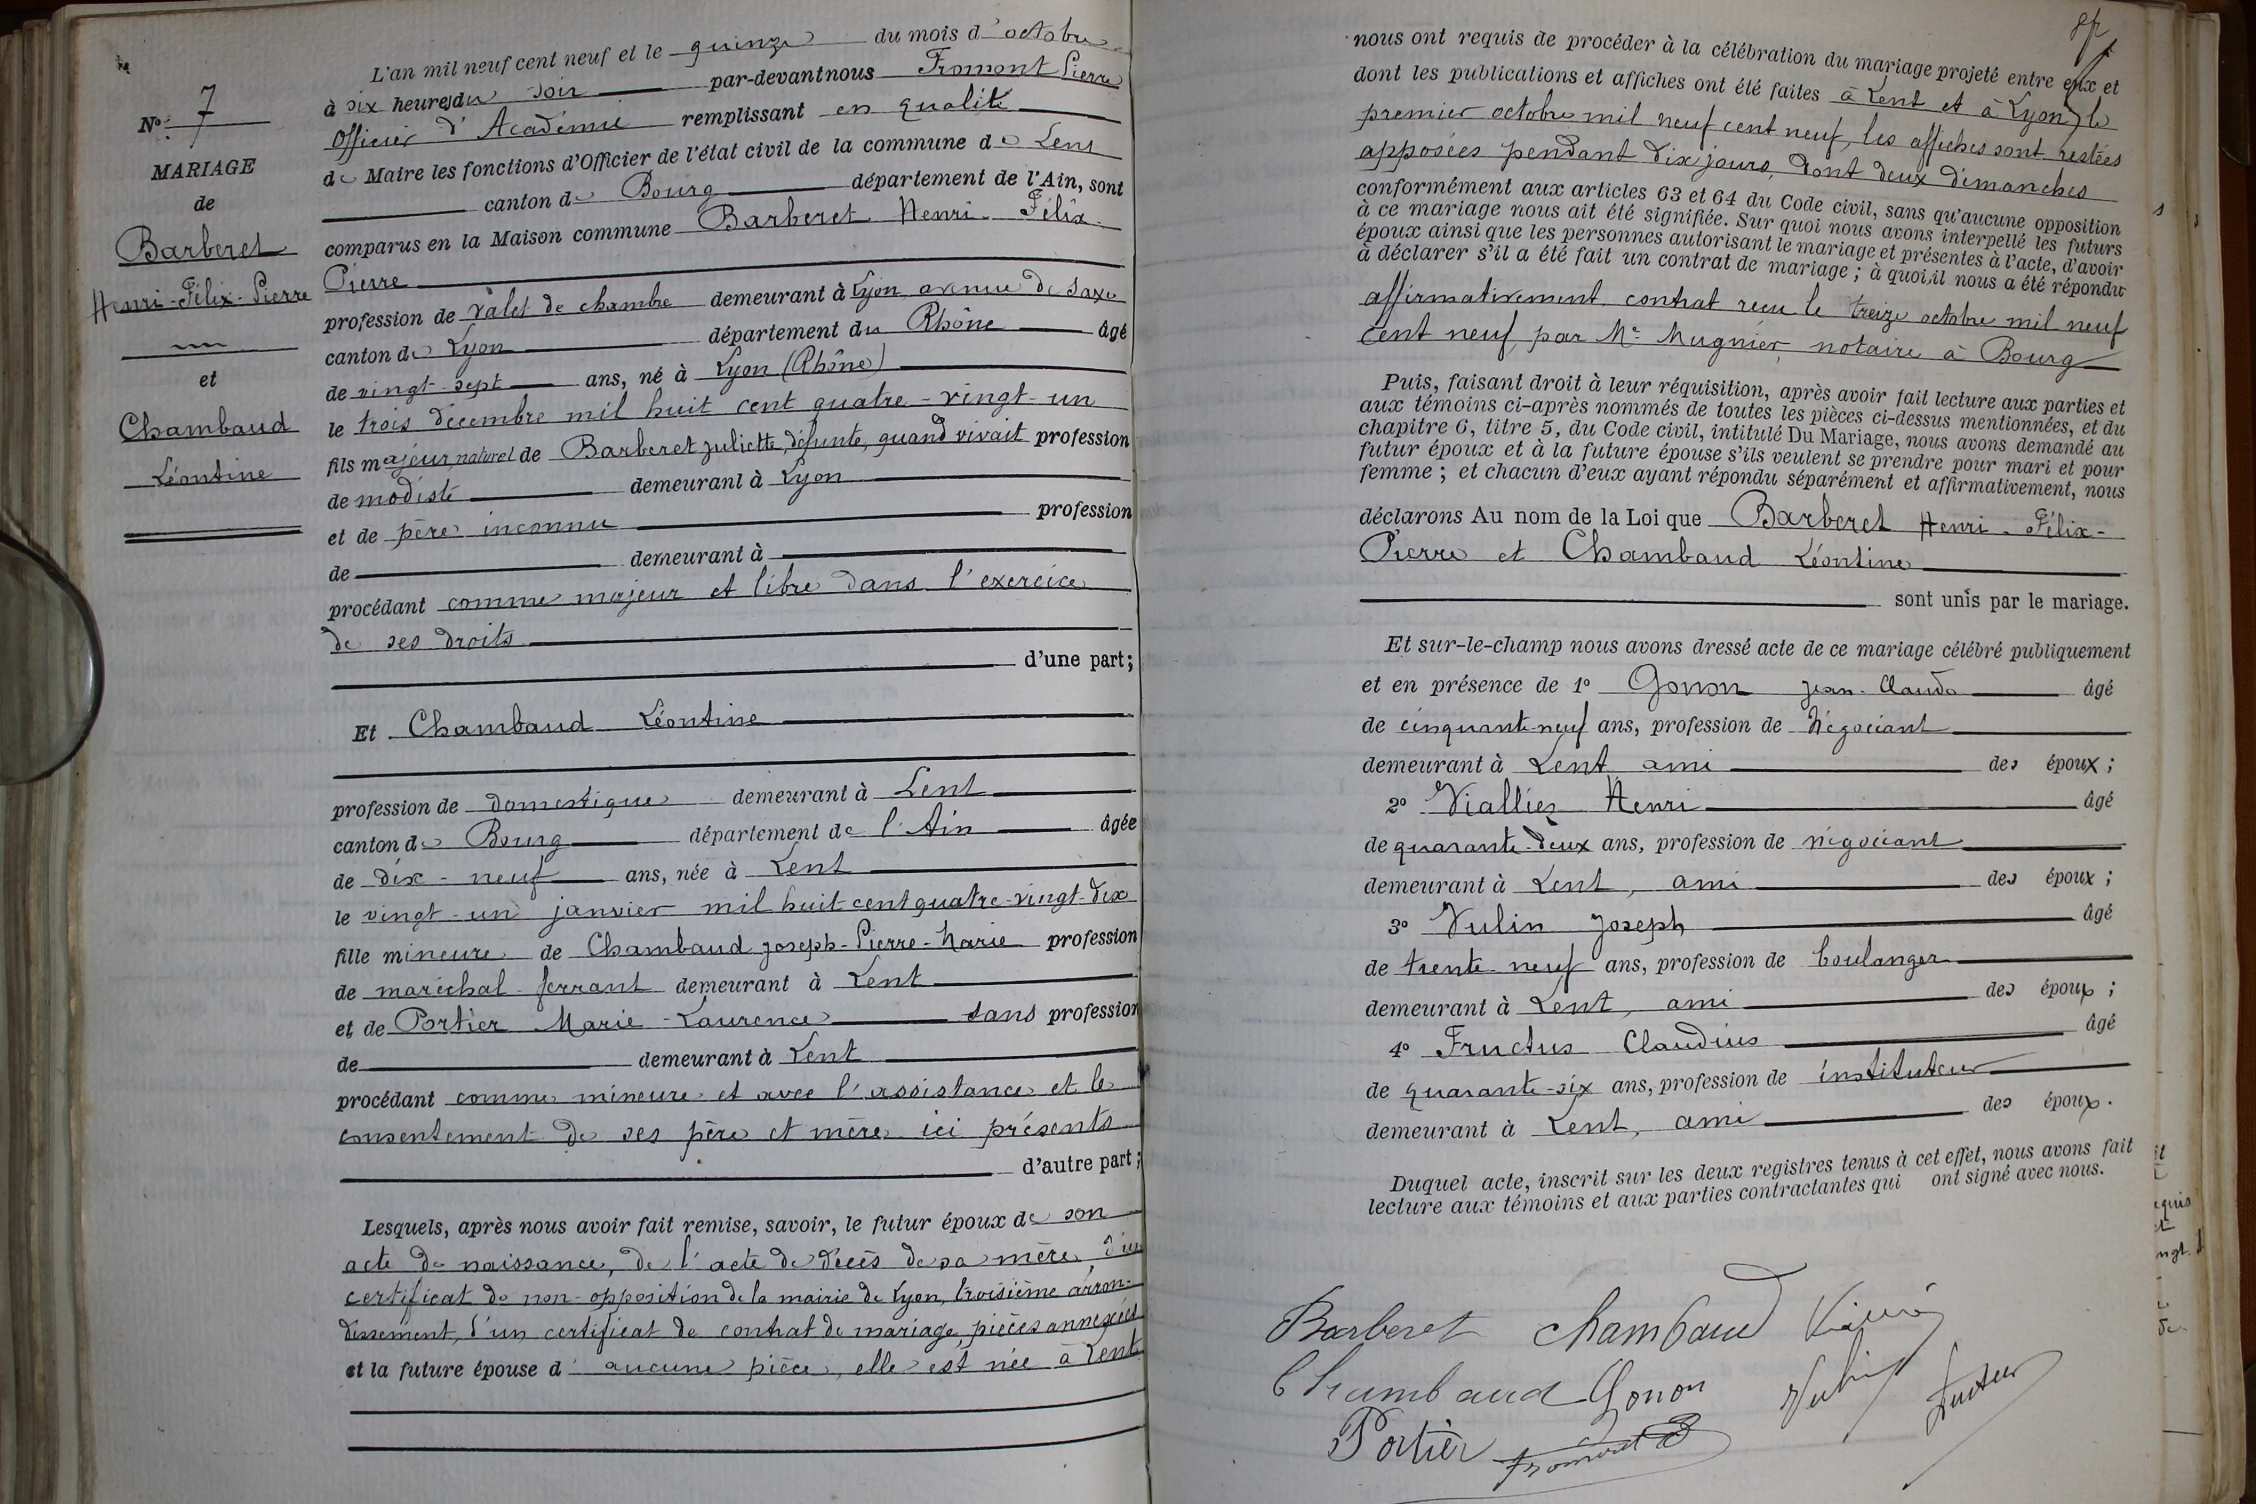 N° 7
MARIAGE
de
Barberet
Henri-Félix-Pierre
et
Chambaud
Léontine
L'an mil neuf cent neuf et le quinze du mois d'octobre
à six heures du soir par-devant nous Fromont Pierre
Officier d'Académie remplissant en qualité
de Maire les fonctions d'Officier de l'état civil de la commune de Lent
canton de Bourg département de l'Ain, sont
comparus en la Maison commune Barberet Henri-Félix-
Pierre
profession de valet de chambre demeurant à Lyon avenue de Saxe
canton de Lyon département du Rhône âgé
de vingt-sept ans, né à Lyon (Rhône)
le trois décembre mil huit cent quatre-vingt-un
fils majeur, naturel de Barberet Juliette, défunte, quand vivait profession
de modiste demeurant à Lyon
et de père inconnu profession
de demeurant à
procédant comme majeur et libre dans l'exercice
de ses droits
d'une part;
Et Chambaud Léontine
profession de domestique demeurant à Lent
canton de Bourg département de l'Ain âgée
de dix-neuf ans, née à Lent
le vingt-un janvier mil huit cent quatre-vingt-dix
fille mineure de Chambaud Joseph-Pierre-Marie profession
de maréchal-ferrant demeurant à Lent
et de Portier Marie-Laurence sans profession
de demeurant à Lent
procédant comme mineure et avec l'assistance et le
consentement de ses père et mère ici présents
d'autre part;
Lesquels, après nous avoir fait remise, savoir, le futur époux de son
acte de naissance, de l'acte de décès de sa mère, d'un
certificat de non-opposition de la mairie de Lyon, troisième arron-
dissement, d'un certificat de contrat de mariage, pièces annexées
et la future épouse d'aucune pièce, elle est née à Lent
nous ont requis de procéder à la célébration du mariage projeté entre eux et
dont les publications et affiches ont été faites à Lent et à Lyon, le
premier octobre mil neuf cent neuf, les affiches sont restées
apposées pendant dix jours, dont deux dimanches
conformément aux articles 63 et 64 du Code civil, sans qu'aucune opposition
à ce mariage nous ait été signifiée. Sur quoi nous avons interpellé les futurs
époux ainsi que les personnes autorisant le mariage et présentes à l'acte, d'avoir
à déclarer s'il a été fait un contrat de mariage; à quoi, il nous a été répondu
affirmativement contrat reçu le treize octobre mil neuf
cent neuf par Me Mugnier, notaire à Bourg
Puis, faisant droit à leur réquisition, après avoir fait lecture aux parties et
aux témoins ci-après nommés de toutes les pièces ci-dessus mentionnées, et du
chapitre 6, titre 5, du Code civil, intitulé Du Mariage, nous avons demandé au
futur époux et à la future épouse s'ils veulent se prendre pour mari et pour
femme; et chacun d'eux ayant répondu séparément et affirmativement, nous
déclarons Au nom de la Loi que Barberet Henri-Félix-
Pierre et Chambaud Léontine
sont unis par le mariage.
Et sur-le-champ nous avons dressé acte de ce mariage célébré publiquement
et en présence de 1° Gonon Jean-Claude âgé
de cinquante-neuf ans, profession de Négociant
demeurant à Lent ami des époux;
2° Viallier Henri âgé
de quarante-deux ans, profession de négociant
demeurant à Lent, ami des époux;
3° Vulin Joseph âgé
de trente-neuf ans, profession de boulanger
demeurant à Lent, ami des époux;
4° Fructus Claudius âgé
de quarante-six ans, profession de instituteur
demeurant à Lent, ami des époux.
Duquel acte, inscrit sur les deux registres tenus à cet effet, nous avons fait
lecture aux témoins et aux parties contractantes qui ont signé avec nous.
Barberet Chambaud
Chambaud Gonon Vulin Fructus
Portier Fromont